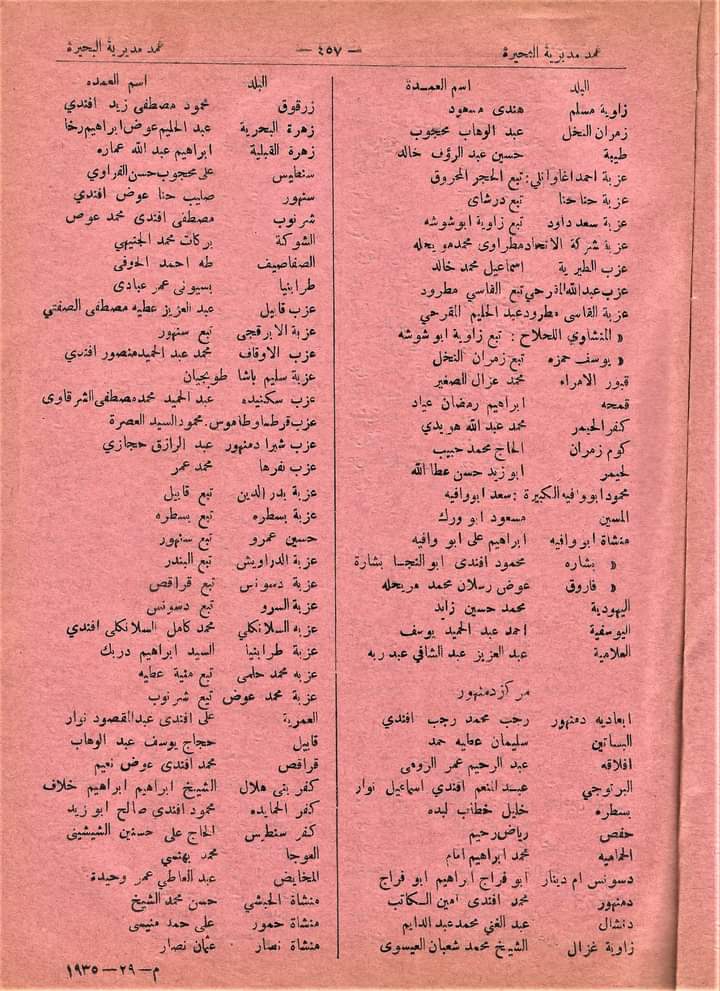 عمد مديرية البحيرة — ٤٥٧ — عمد مديرية البحيرة
البلد اسم العمـــدة
زاوية مسلم هندى مسعود
زمران النخل عبد الوهاب محجوب
طيبة حسين عبد الرؤف خالد
عزبة احمد اغاوانلي: تبع الحجر المحروق
عزبة حنا حنا تبع درشاى
عزبة سعد داود تبع زاوية ابو شوشه
عزبة شركة الاتحاد مطراوى محمد مويحله
عزب الطيرية اسماعيل محمد خالد
عزب عبد الله المقرحي تبع القاسي مطرود
عزبة القاسى مطرود عبد الحليم المقرحي
« المنشاوي اللحلاح : تبع زاوية ابو شوشه
« يوسف حمزه تبع زمران النخل
قبور الامراء محمد عزال الصغير
قمحه ابراهيم رمضان عياد
كفر الحيمر محمد عبد الله هويدي
كوم زمران الحاج محمد حبيب
لحيمر ابو زيد حسن عطا الله
محمود ابو وافيه الكبيرة : سعد ابو وافيه
المسين مسعود ابو ورك
منشاة ابو وافيه ابراهيم على ابو وافيه
« بشاره محمود افندى ابو النجـا بشارة
« فاروق عوض رسلان محمد مريحله
اليهودية محمد حسين زايد
اليوسفية احمد عبد الحميد يوسف
العلامية عبد العزيز عبد الشافي عبد ربه
مركز دمنهور
ابعاديه دمنهور رجب محمد رجب افندي
البساتين سليمان عطيه حمد
افلاقه عبد الرحيم عمر الرومى
البرنوجي عبد المنعم افندي اسماعيل نوار
بسطره خليل خطاب لبده
حفص رياض رحيم
الحماميه محمد ابراهيم امام
دسونس ام دينار ابو فراج ابراهيم ابو فراج
دمنهور محمد افندى امين الكاتب
دنشال عبد الغني محمد عبد الدايم
زاوية غزال الشيخ محمد شعبان العيسوى
البلد اسم العمده
زرقوق محمود مصطفى زيد افندي
زهرة البحرية عبد الحليم عوض ابراهيم رخا
زهرة القبلية ابراهيم عبد الله عماره
سنطيس على محجوب حسن الفراوي
سنهور صليب حنا عوض افندي
شرنوب مصطفى افندى محمد عوض
الشوكة بركات محمد الجنيهي
الصفاصيف طه احمد الحوفى
طرابنيا بسيونى عمر عبادى
عزب قابيل عبد العزيز عطيه مصطفى الصفتي
عزبة الابرقجى تبع سنهور
عزب الاوقاف محمد عبد الحميد منصور افندي
عزبة سليم باشا طوبجيان
عزب سكنيده عبد الحميد محمد مصطفى الشرقاوى
عزب قرطما وطاموس. محمود السيد العصرة
عزب شبرا دمنهور عبد الرازق حجازي
عزب نفرها محمد عمر
عزبة بدر الدين تبع قابيل
عزبة بسطره تبع بسطره
حسين عمرو تبع سنهور
عزبة الدراويش تبع البندر
عزبة دسونس تبع قراقص
عزبة السرو تبع دسونس
عزبه السلانكلي محمد كامل السلانكلى افندي
عزبة طرابنيا السيد ابراهيم دربك
عزبه محمد حلمى تبع منية عطيه
عزبة محمد عوض تبع شرنوب
العمرية على افندى عبد المقصود نوار
قابيل حجاج يوسف عبد الوهاب
قراقص محمد افندى عوض نعيم
كفر بنى هلال الشيخ ابراهيم ابراهيم خلاف
كفر الحمايده محمود افندي صالح ابو زيد
كفر سنطيس الحاج على حسنين الشيشينى
العوجا محمد بهنسي
المخايض عبد العاطي عمر وحيدة
منشاة الحبشي حسن محمد الشيخ
منشاة حمور على حمد منيسى
منشاة نصار عثمان نصار
م—٢٩—١٩٣٥